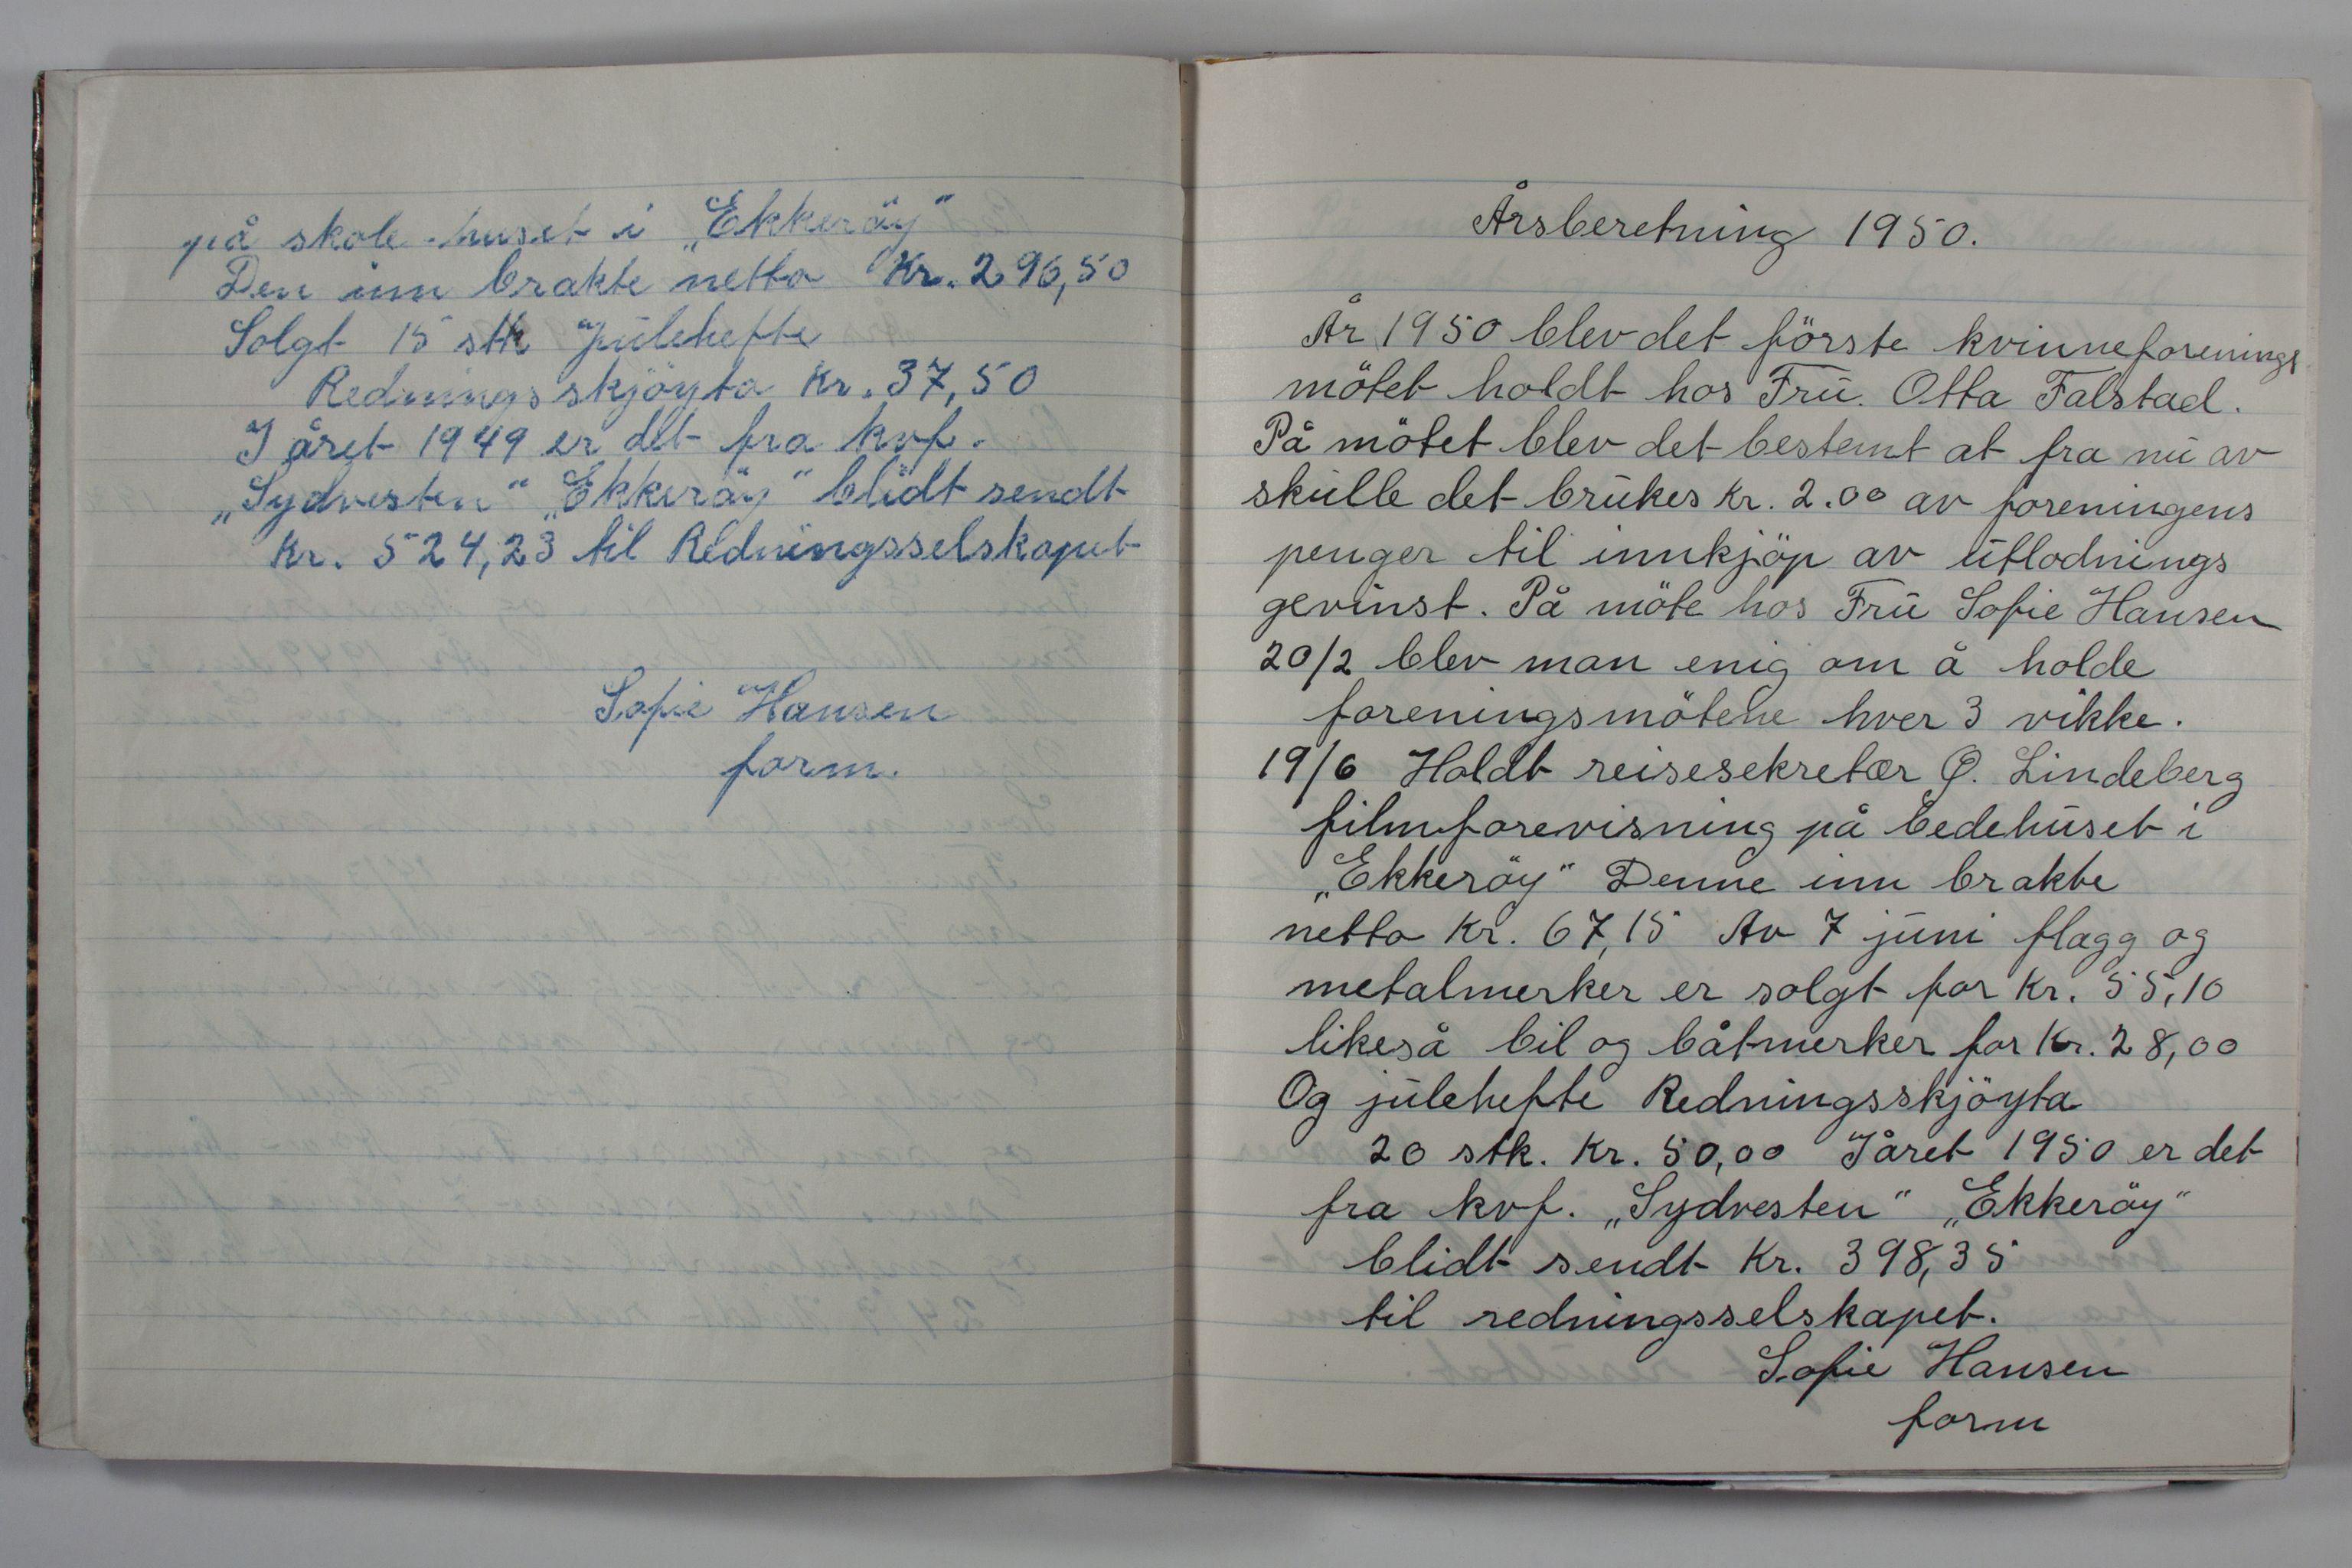 på skole-huset i „Ekkeröy"
Den inn brakte netto Kr. 296,50
Solgt 15 stk Julehefte
Rednings skjöyta Kr. 37,50
I året 1949 er det fra kvf.
„Sydvesten" „Ekkeröy" blidt sendt
Kr. 524,23 til Redningsselskapet
Sofie Hansen
form.
Årsberetning 1950.
År 1950 blev det förste kvinneforenings
mötet holdt hos Fru. Otta Falstad.
På mötet blev det bestemt at fra nu av
skulle det brukes Kr. 2.00 av foreningens
penger til innkjöp av utlodnings
gevinst. På möte hos Fru Sofie Hansen
20/2 blev man enig om å holde
foreningsmötene hver 3 vikke.
19/6 Holdt reisesekretær Ø. Lindeberg
filmforevisning på bedehuset i
„Ekkeröy" Denne inn brakte
netto Kr. 67,15 Av 7 juni flagg og
metalmerker er solgt for Kr. 55,10
likeså bil og båtmerker for Kr. 28,00
Og julehefte Redningsskjöyta
20 stk. Kr. 50,00 Iåret 1950 er det
fra kvf. „Sydvesten" „Ekkeröy"
blidt sendt Kr. 398,35
til redningsselskapet.
Sofie Hansen
form